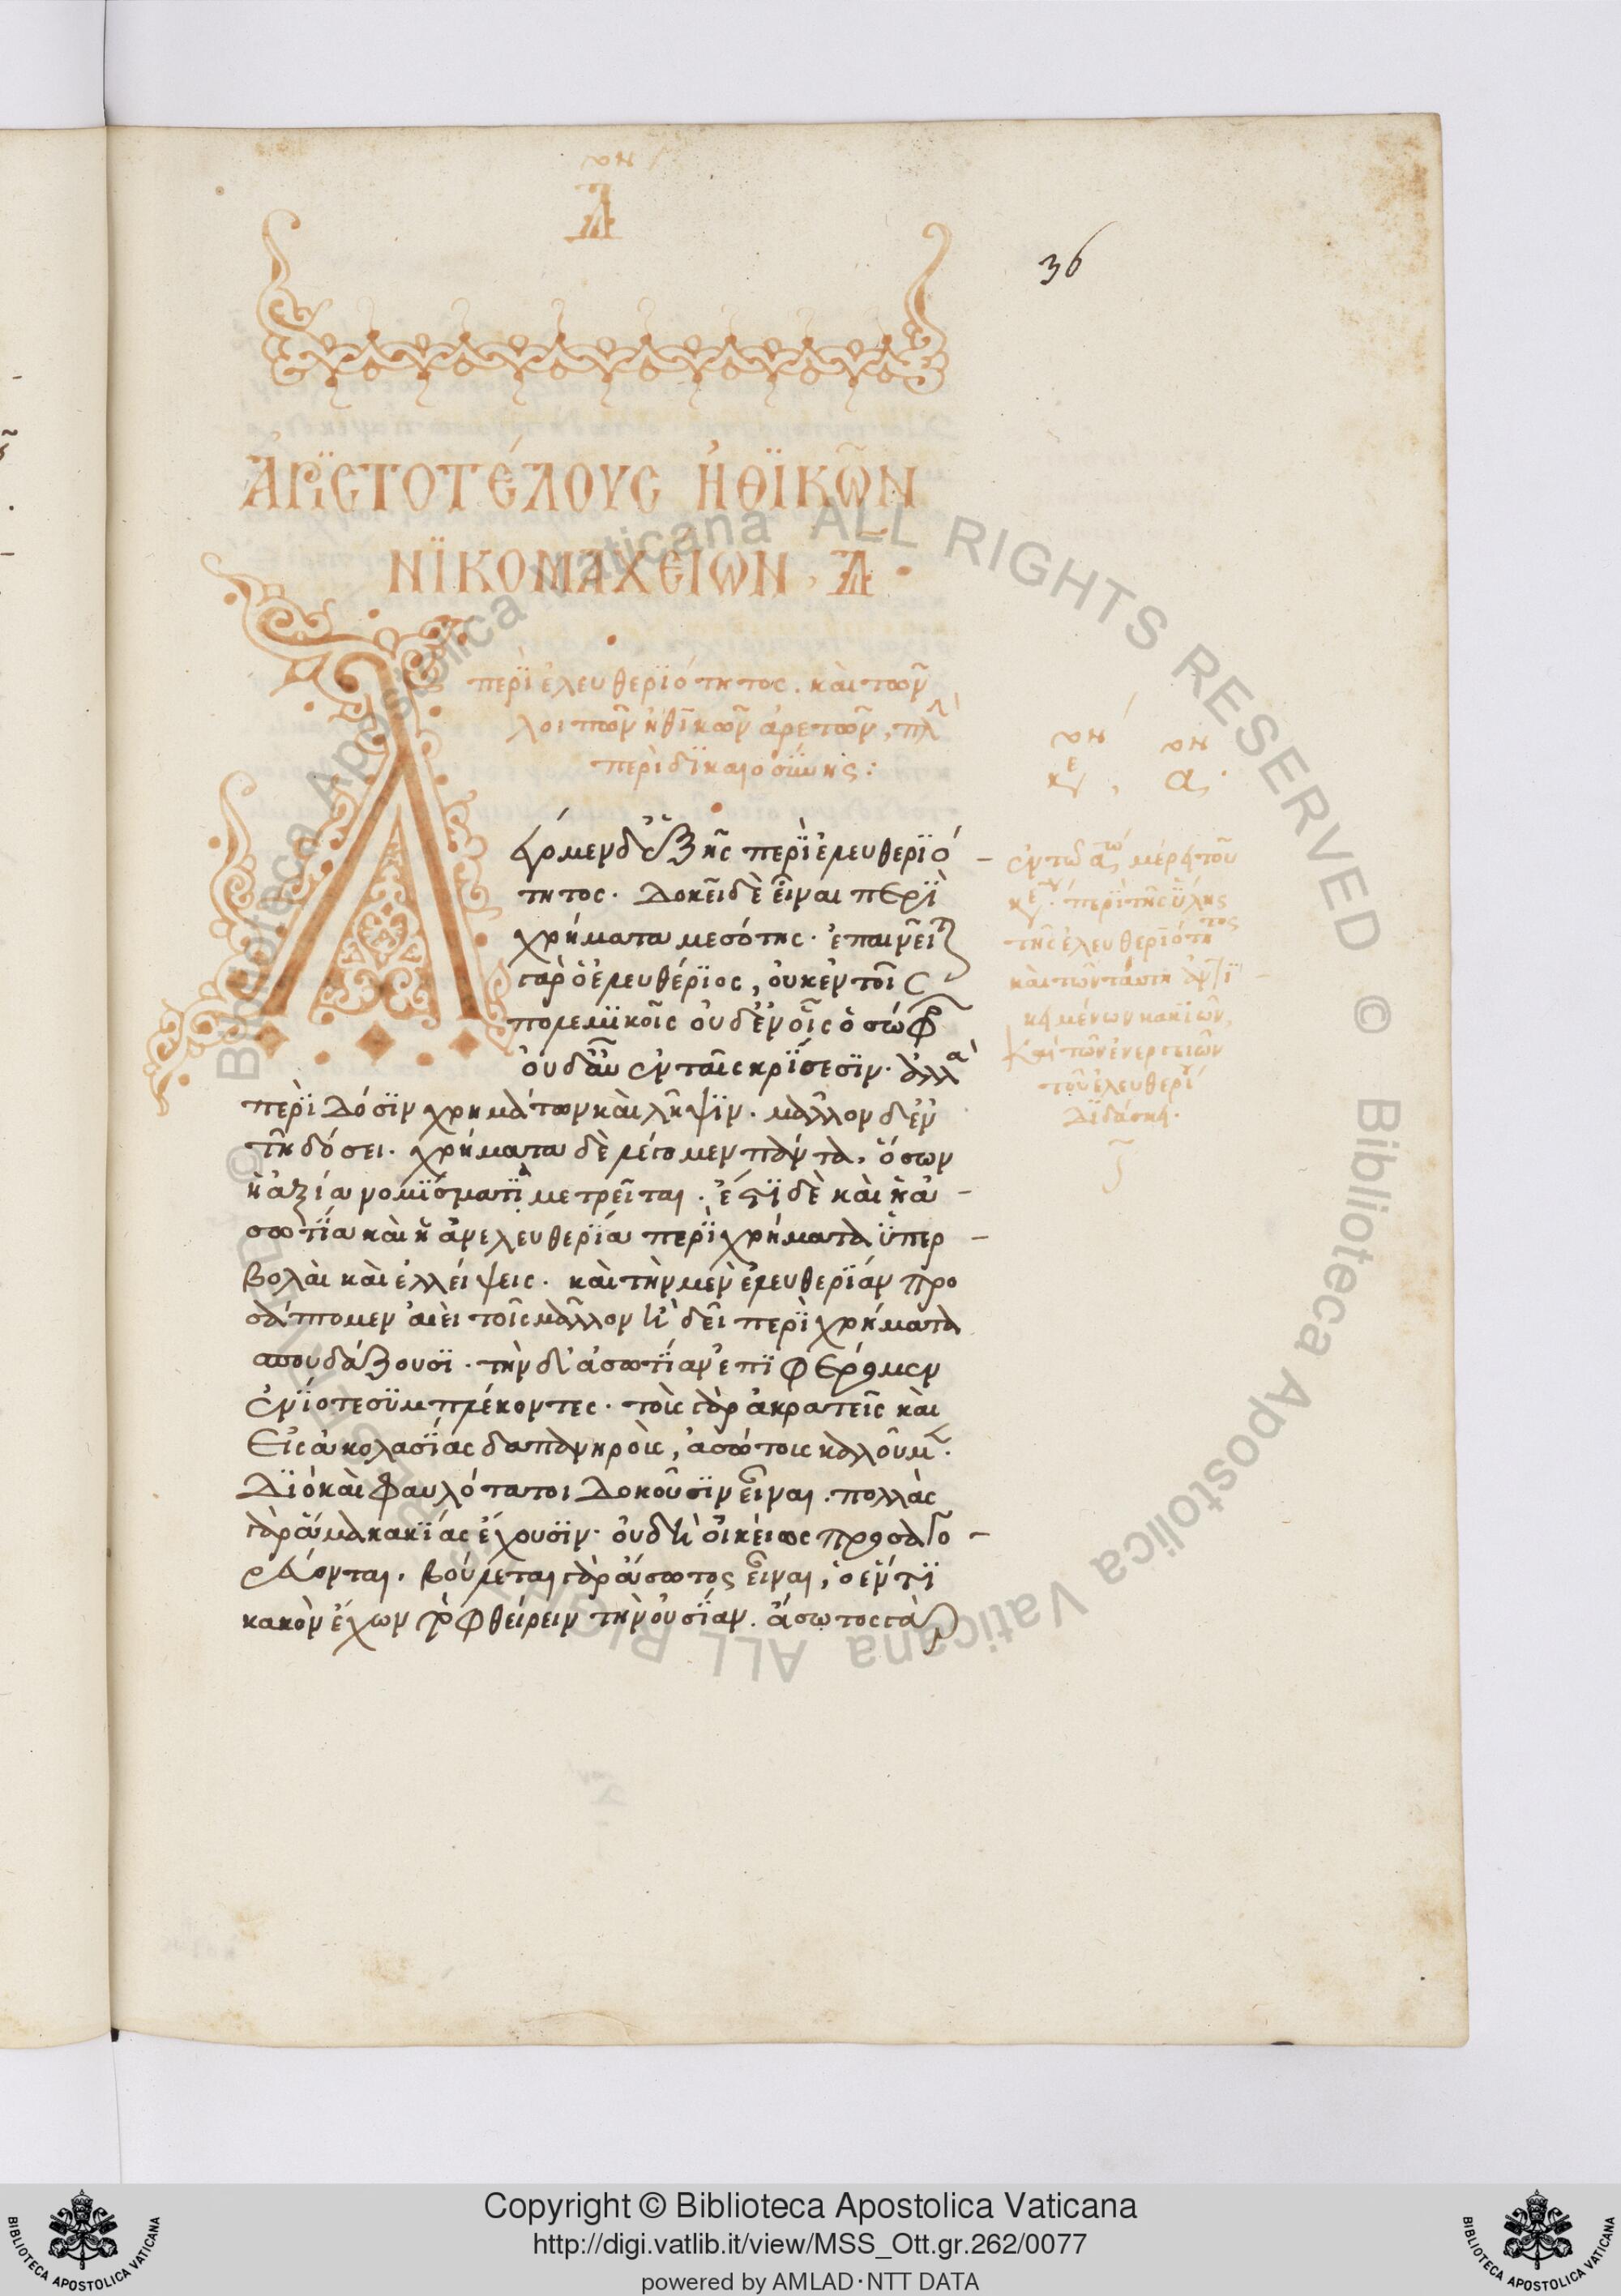 ον
Δ
36
ἈΡΙΣΤΟΤΈΛΟΥΣ ἨΘΪΚΩ͂Ν
ΝΪΚΟΜΑΧΕΙΩΝ, Δ.
περῒ ἐλευθερϊότητος. καὶ τῶν
λοιπῶν ἠθϊκῶν ἀρετῶν, πλ
περὶ δϊκαιοσύνης:
Λέγομεν δ' ἑξῆς περῒ ἐλευθερϊό-
τητος. Δοκεῖ δὲ εἶναι περῒ
χρήματα μεσότης. ἐπαινεῖτ
γὰρ ὁ ἐλευθέριος, οὐκ ἐν τοῖς
πολεμϊκοῖς οὐδ' ἐν οἷς ὁ σώφρ
οὐδ' αὖ ἐν ταῖς κρίσεσϊν. ἀλλὰ
περὶ Δόσϊν χρημάτων καὶ λῆψϊν. μᾶλλον δ' ἐν
τῇ δόσει. χρήματα δὲ λέγομεν πάντα, ὅσων
ἡ ἀξία νομίσματϊ μετρεῖται. ἔστϊ δὲ καὶ ἡ ἀ-
σωτΐα καὶ ἡ ἀνελευθερϊα περῒ χρήματα ὑπερ-
βολαὶ καὶ ἐλλείψεις. καὶ τὴν μὲν ἐλευθερϊαν προ
σάπτομεν ἀεὶ τοῖς μᾶλλον ἢ δεῖ περῒ χρήματα
σπουδάζουσϊ. τὴν δ' ἀσωτΐαν ἐπϊφέρομεν
ἐνΐοτε συμπλέκοντες. τοὺς γὰρ ἀκρατεῖς καὶ
εἰς ἀκολασΐας δαπανηροὺς, ἀσώτους καλοῦμ.
Δϊὸ καὶ φαυλότατοι Δοκοῦσϊν εἶναι. πολλὰς
γὰρ ἅμα κακΐας ἔχουσϊν. οὐ δὴ οἰκείως προσαγο-
ρεύονται. βούλεται γὰρ ἄσωτος εἶναι, ὁ ἕν τϊ
κακὸν ἔχων τὸ φθείρειν τὴν οὐσΐαν. ἄσωτος γὰρ
ον ον
κε, α.
ἐν τῶ αω μέρει τοῦ
κε. περὶ τῆς ὕλης
τῆς ἐλευθερϊότητος
καὶ τῶν ταύτη ἀντϊ
κειμένων κακϊῶν,
καὶ τῶν ἐνεργειῶν
τοῦ ἐλευθερΐ
Δϊδάσκει.
Copyright © Biblioteca Apostolica Vaticana
http://digi.vatlib.it/view/MSS_Ott.gr.262/0077
powered by AMLAD·NTT DATA
BIBLIOTECA APOSTOLICA VATICANA
BIBLIOTECA APOSTOLICA VATICANA
© Biblioteca Apostolica Vaticana ALL RIGHTS RESERVED
© Biblioteca Apostolica Vaticana ALL RIGHTS RESERVED